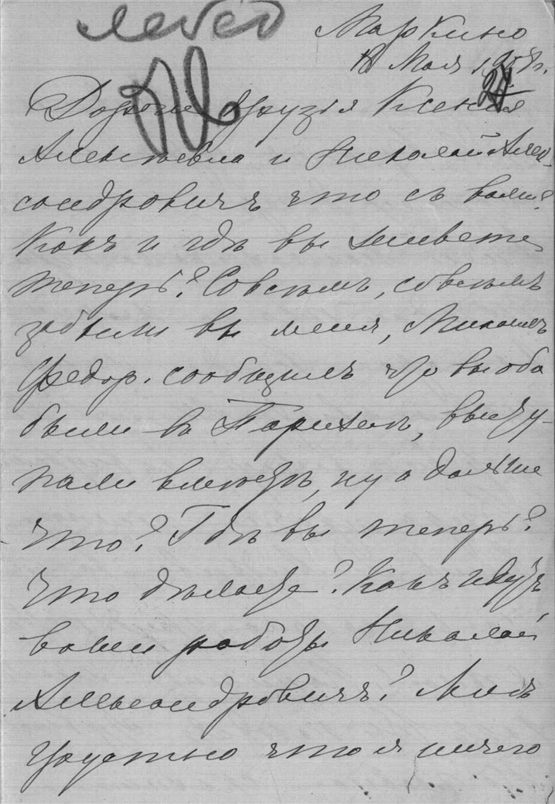 Маркино
18 Мая 1908 г.
Дорогие друзья Ксенія
Алексѣевна и Николай Алек-
сандровичъ что съ вами?
Какъ и гдѣ вы живете
теперь? Совсѣмъ, совсѣмъ
забыли вы меня,
Федор. сообщилъ что вы оба
были въ Парижѣ, высту-
пали въ ну а дальше
что? Гдѣ вы теперь?
Что дѣлаете? Какъ идутъ
ваши работы Николай
Александровичъ? Мнѣ
грустно что я ничего